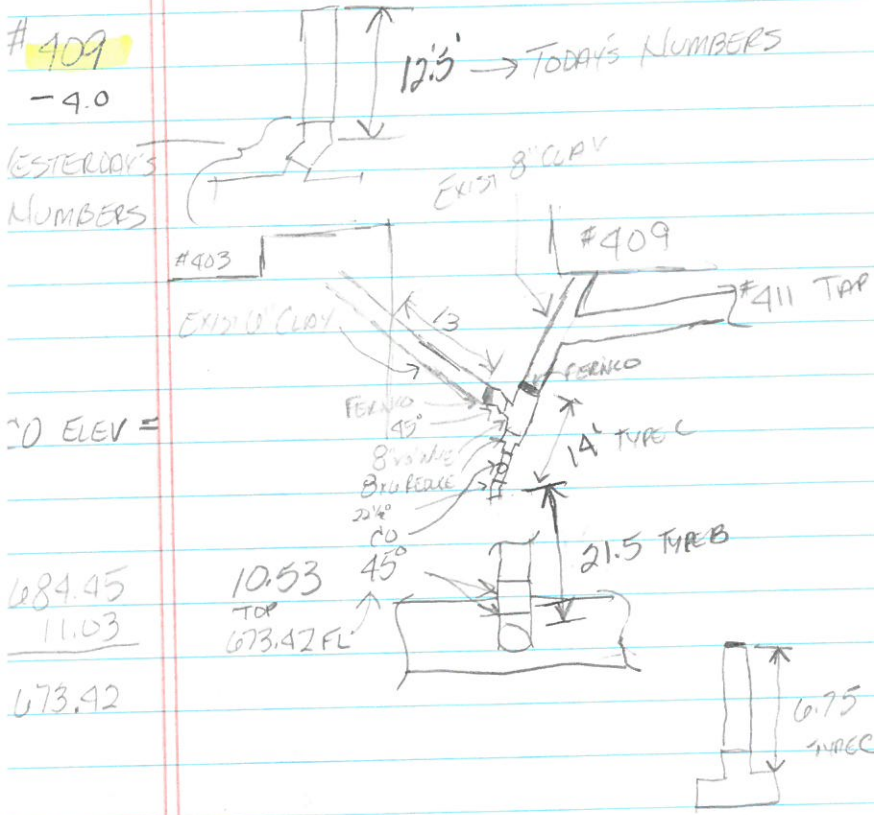 # 409
12.5' → TODAY'S NUMBERS
-4.0
YESTERDAY'S
NUMBERS
EXIST 8" CLAY
#403
#409
#411 TAP
EXIST 6" CLAY
13
FERNCO
FERNCO
45°
14' TYPE C
8"x6" WYE
8x6 REDUCE
22½°
CO
CO ELEV =
21.5 TYPE B
45°
684.45
11.03
673.42
10.53
TOP
673.42 FL
6.75
TYPE C